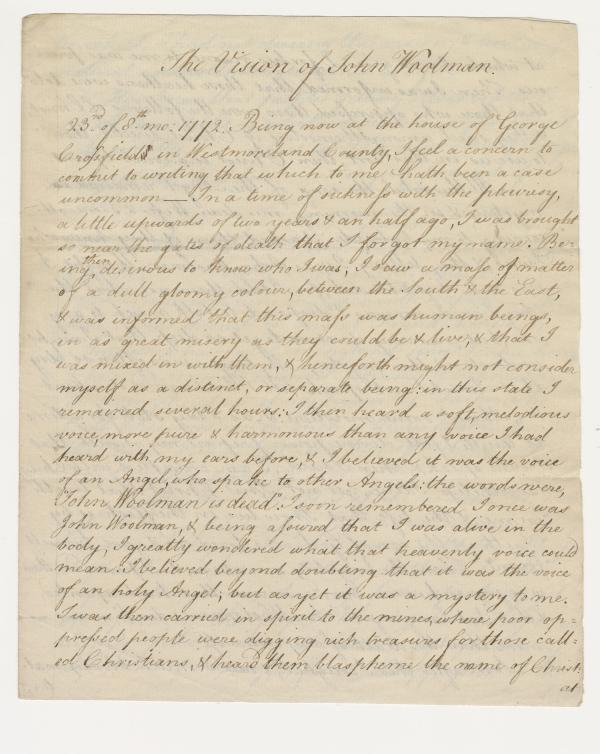 The Vision of John Woolman.
23rd of 8th mo: 1772. Being now at the house of George
Crosfields in Westmoreland County, I feel a concern to
commit to writing that which to me hath been a case
uncommon — In a time of sickness with the pleurisy,
a little upwards of two years & an half ago, I was brought
so near the gates of death that I forgot my name. Be-
ing then desirous to know who I was, I saw a mass of matter
of a dull gloomy colour, between the South & the East,
& was informed that this mass was human beings,
in as great misery as they could be & live, & that I
was mixed in with them, & henceforth might not consider
myself as a distinct, or separate being: in this state I
remained several hours: I then heard a soft, melodious
voice, more pure & harmonious than any voice I had
heard with my ears before, & I believed it was the voice
of an Angel, who spake to other Angels: the words were,
"John Woolman is dead". I soon remembered I once was
John Woolman, & being assured that I was alive in the
body, I greatly wondered what that heavenly voice could
mean. I believed beyond doubting that it was the voice
of an holy Angel; but as yet it was a mystery to me.
I was then carried in spirit to the mines, where poor op=
pressed people were digging rich treasures for those call=
ed Christians, & heard them blaspheme the name of Christ:
at